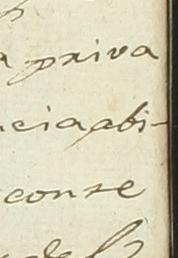 a priva
ncia abi-
conse